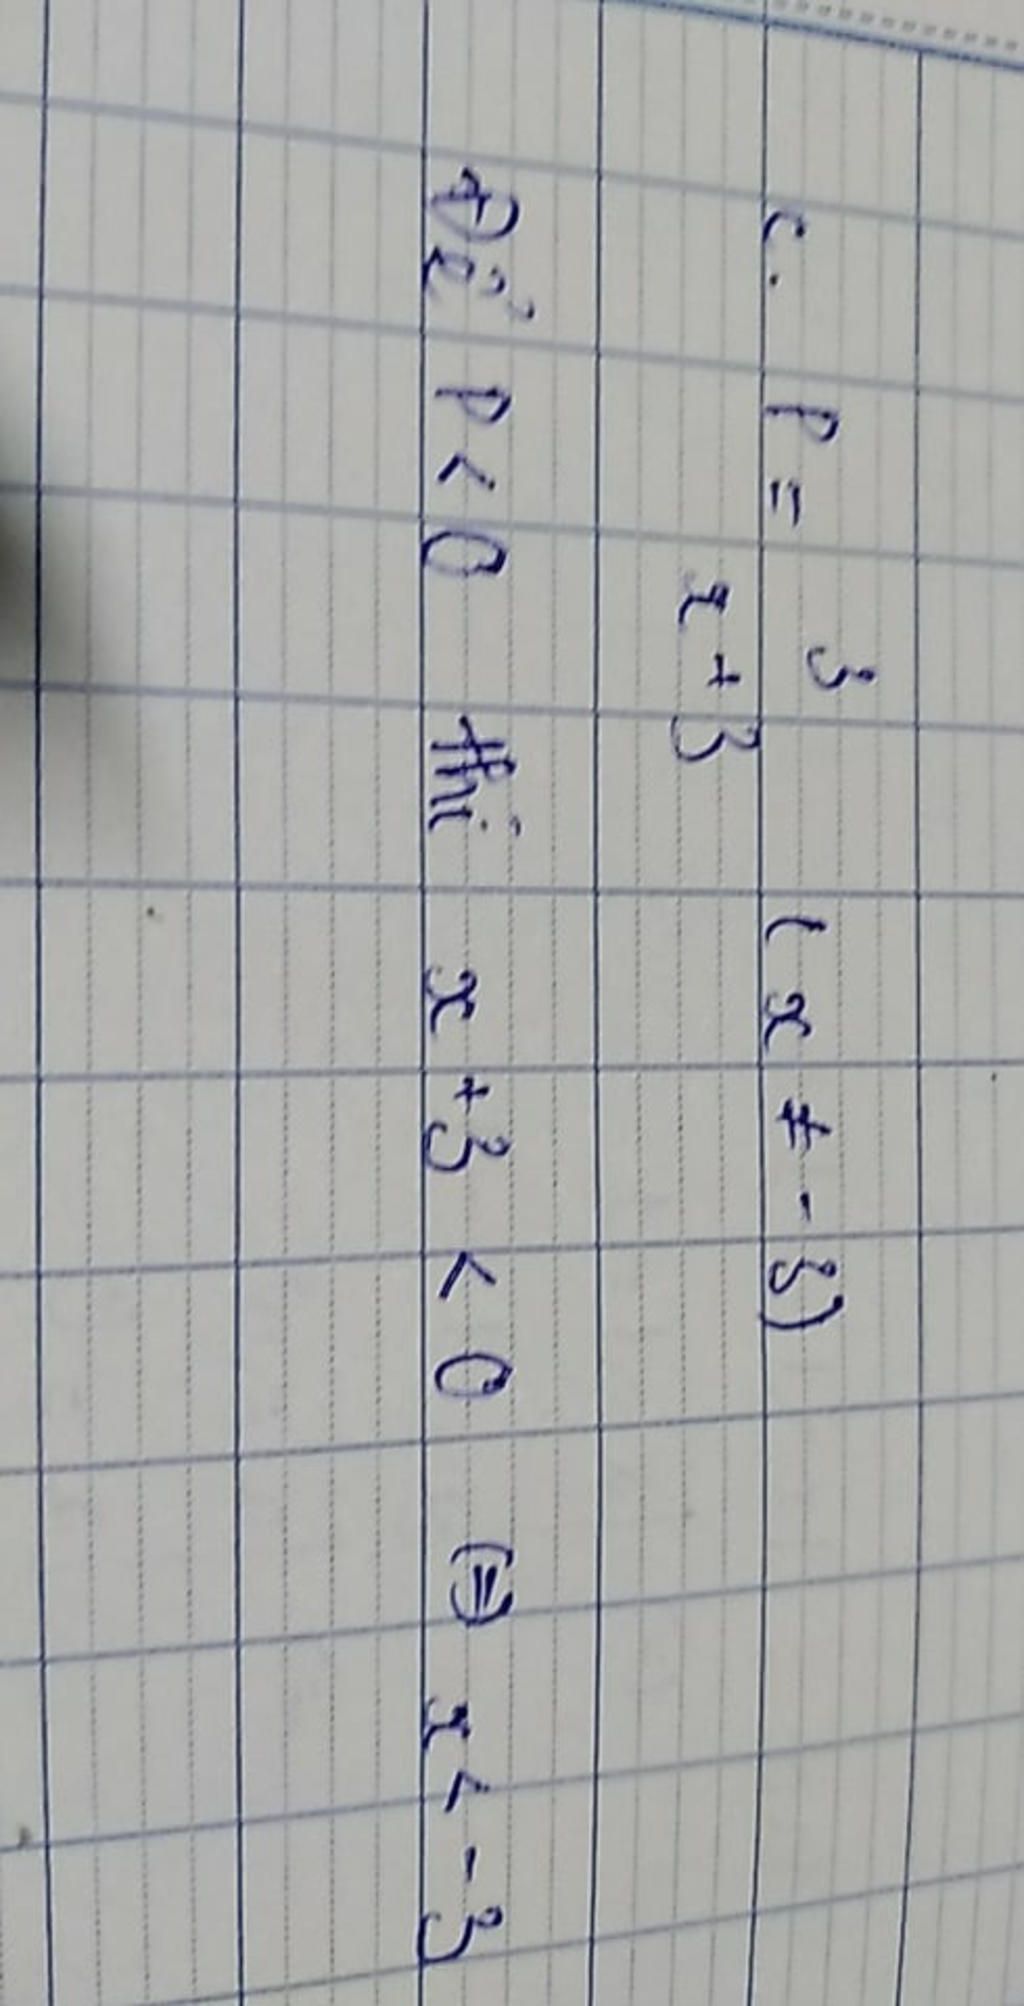 c. P = 3 (x ≠ -3)
x + 3
Để P < 0 thì x + 3 < 0 (=) x < -3